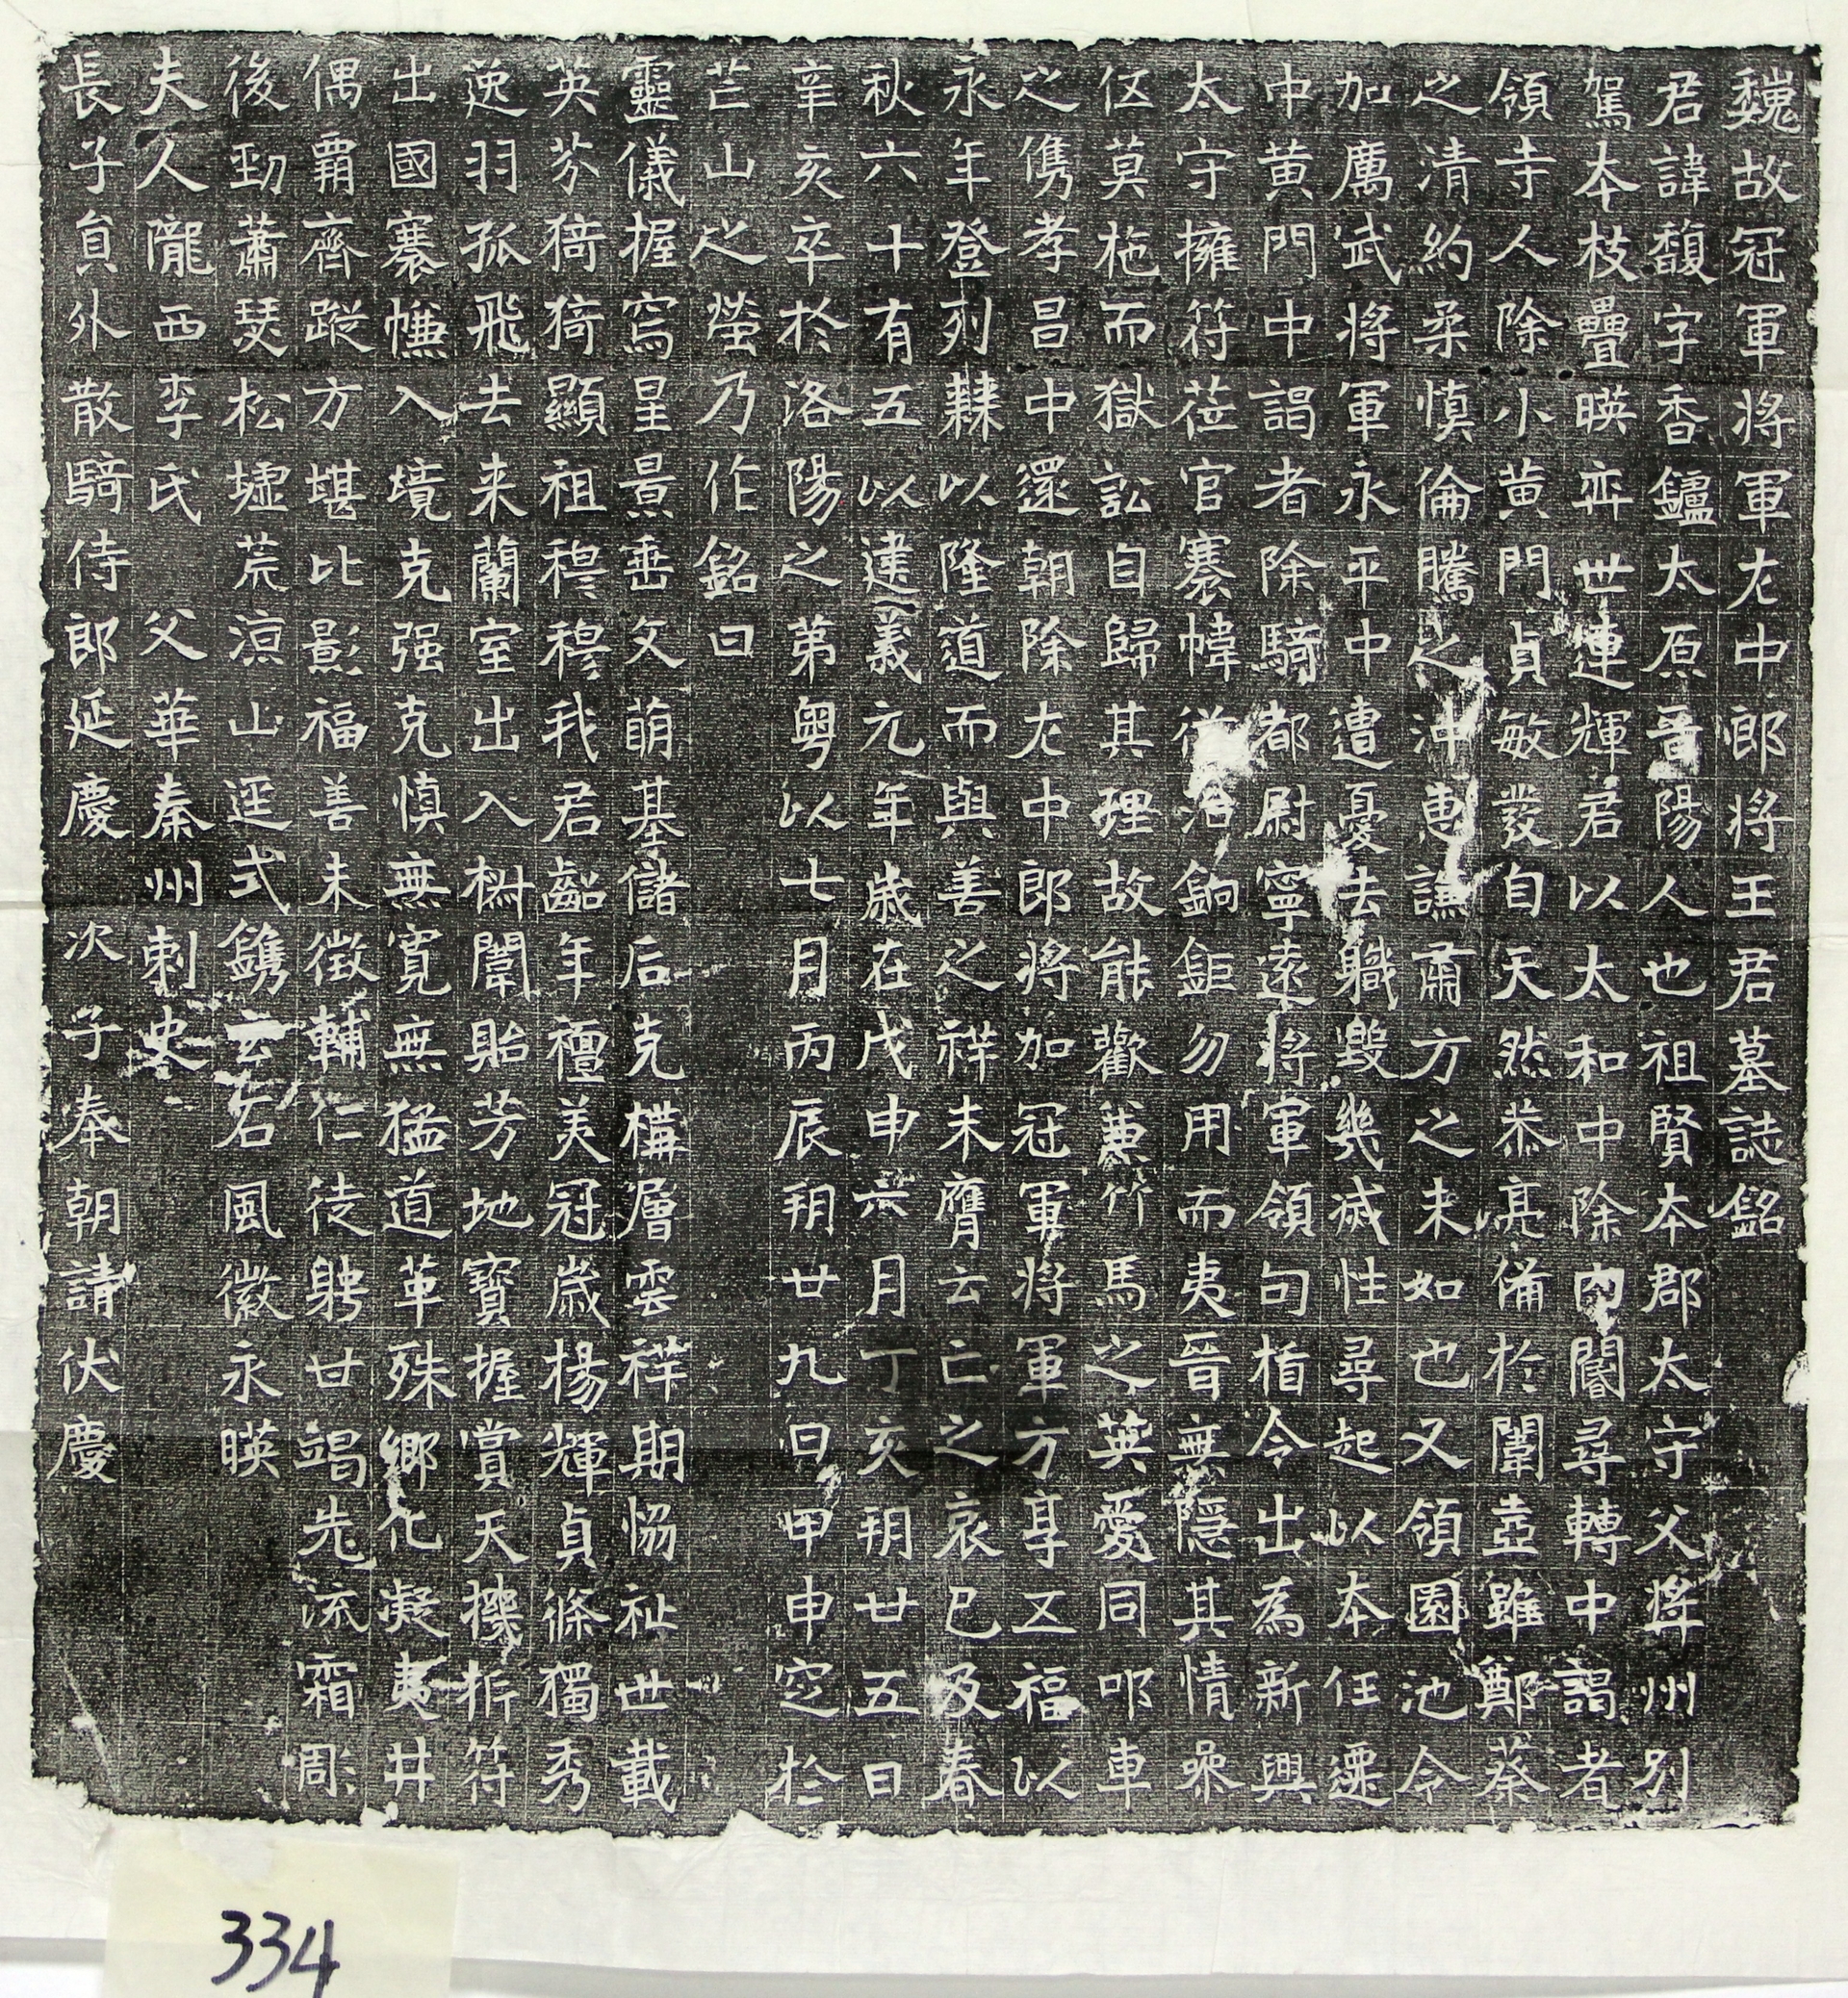 魏故冠軍將軍左中郎將王君墓誌銘
君諱馥字香鑪太原晉陽人也祖賢本郡太守父并州別
駕本枝疊暎弈世連輝君以太和中除內闇尋轉中謁者
領寺人除小黃門貞敏發自天然恭亮俻於闈壼雖鄭蔡
之清約柔慎倫騰之沖惠謙肅方之未如也又領園池令
加厲武將軍永平中遭憂去職毀幾滅性尋起以本任遷
中黃門中謁者除騎都尉寧遠將軍領句楯令出為新興
太守擁符莅官褰幃從治鉤鉅勿用而夷晉無隱其情桑
伛莫柂而獄訟自歸其理故能歡兼竹馬之英愛同叩車
之儁孝昌中還朝除左中郎將加冠軍將軍方享五福以
永年登列棘以隆道而與善之祥未膺云亡之哀已及春
秋六十有五以建義元年歲在戊申六月丁亥朔廿五日
辛亥卒於洛陽之第粵以七月丙辰朔廿九日甲申窆於
芒山之塋乃作銘曰
靈儀握寫星景垂文萌基儲后克構層雲祥期協祉世載
英芬猗猗顯祖穆穆我君齠年禮美冠歲楊輝貞條獨秀
逸羽孤飛去来蘭室出入椒闈貽芳地寶握賞天機析符
出國褰幰入境克强克慎無寬無猛道革殊鄉化凝夷井
偶霸齊蹤方堪比影福善未徵輔仁徒聘廿竭先流霜彫
後勁蕭瑟松墟荒涼山逕式鐫云石風徽永暎
夫人隴西李氏 父華秦州刺史
長子員外散騎侍郎延慶次子奉朝請伏慶
334